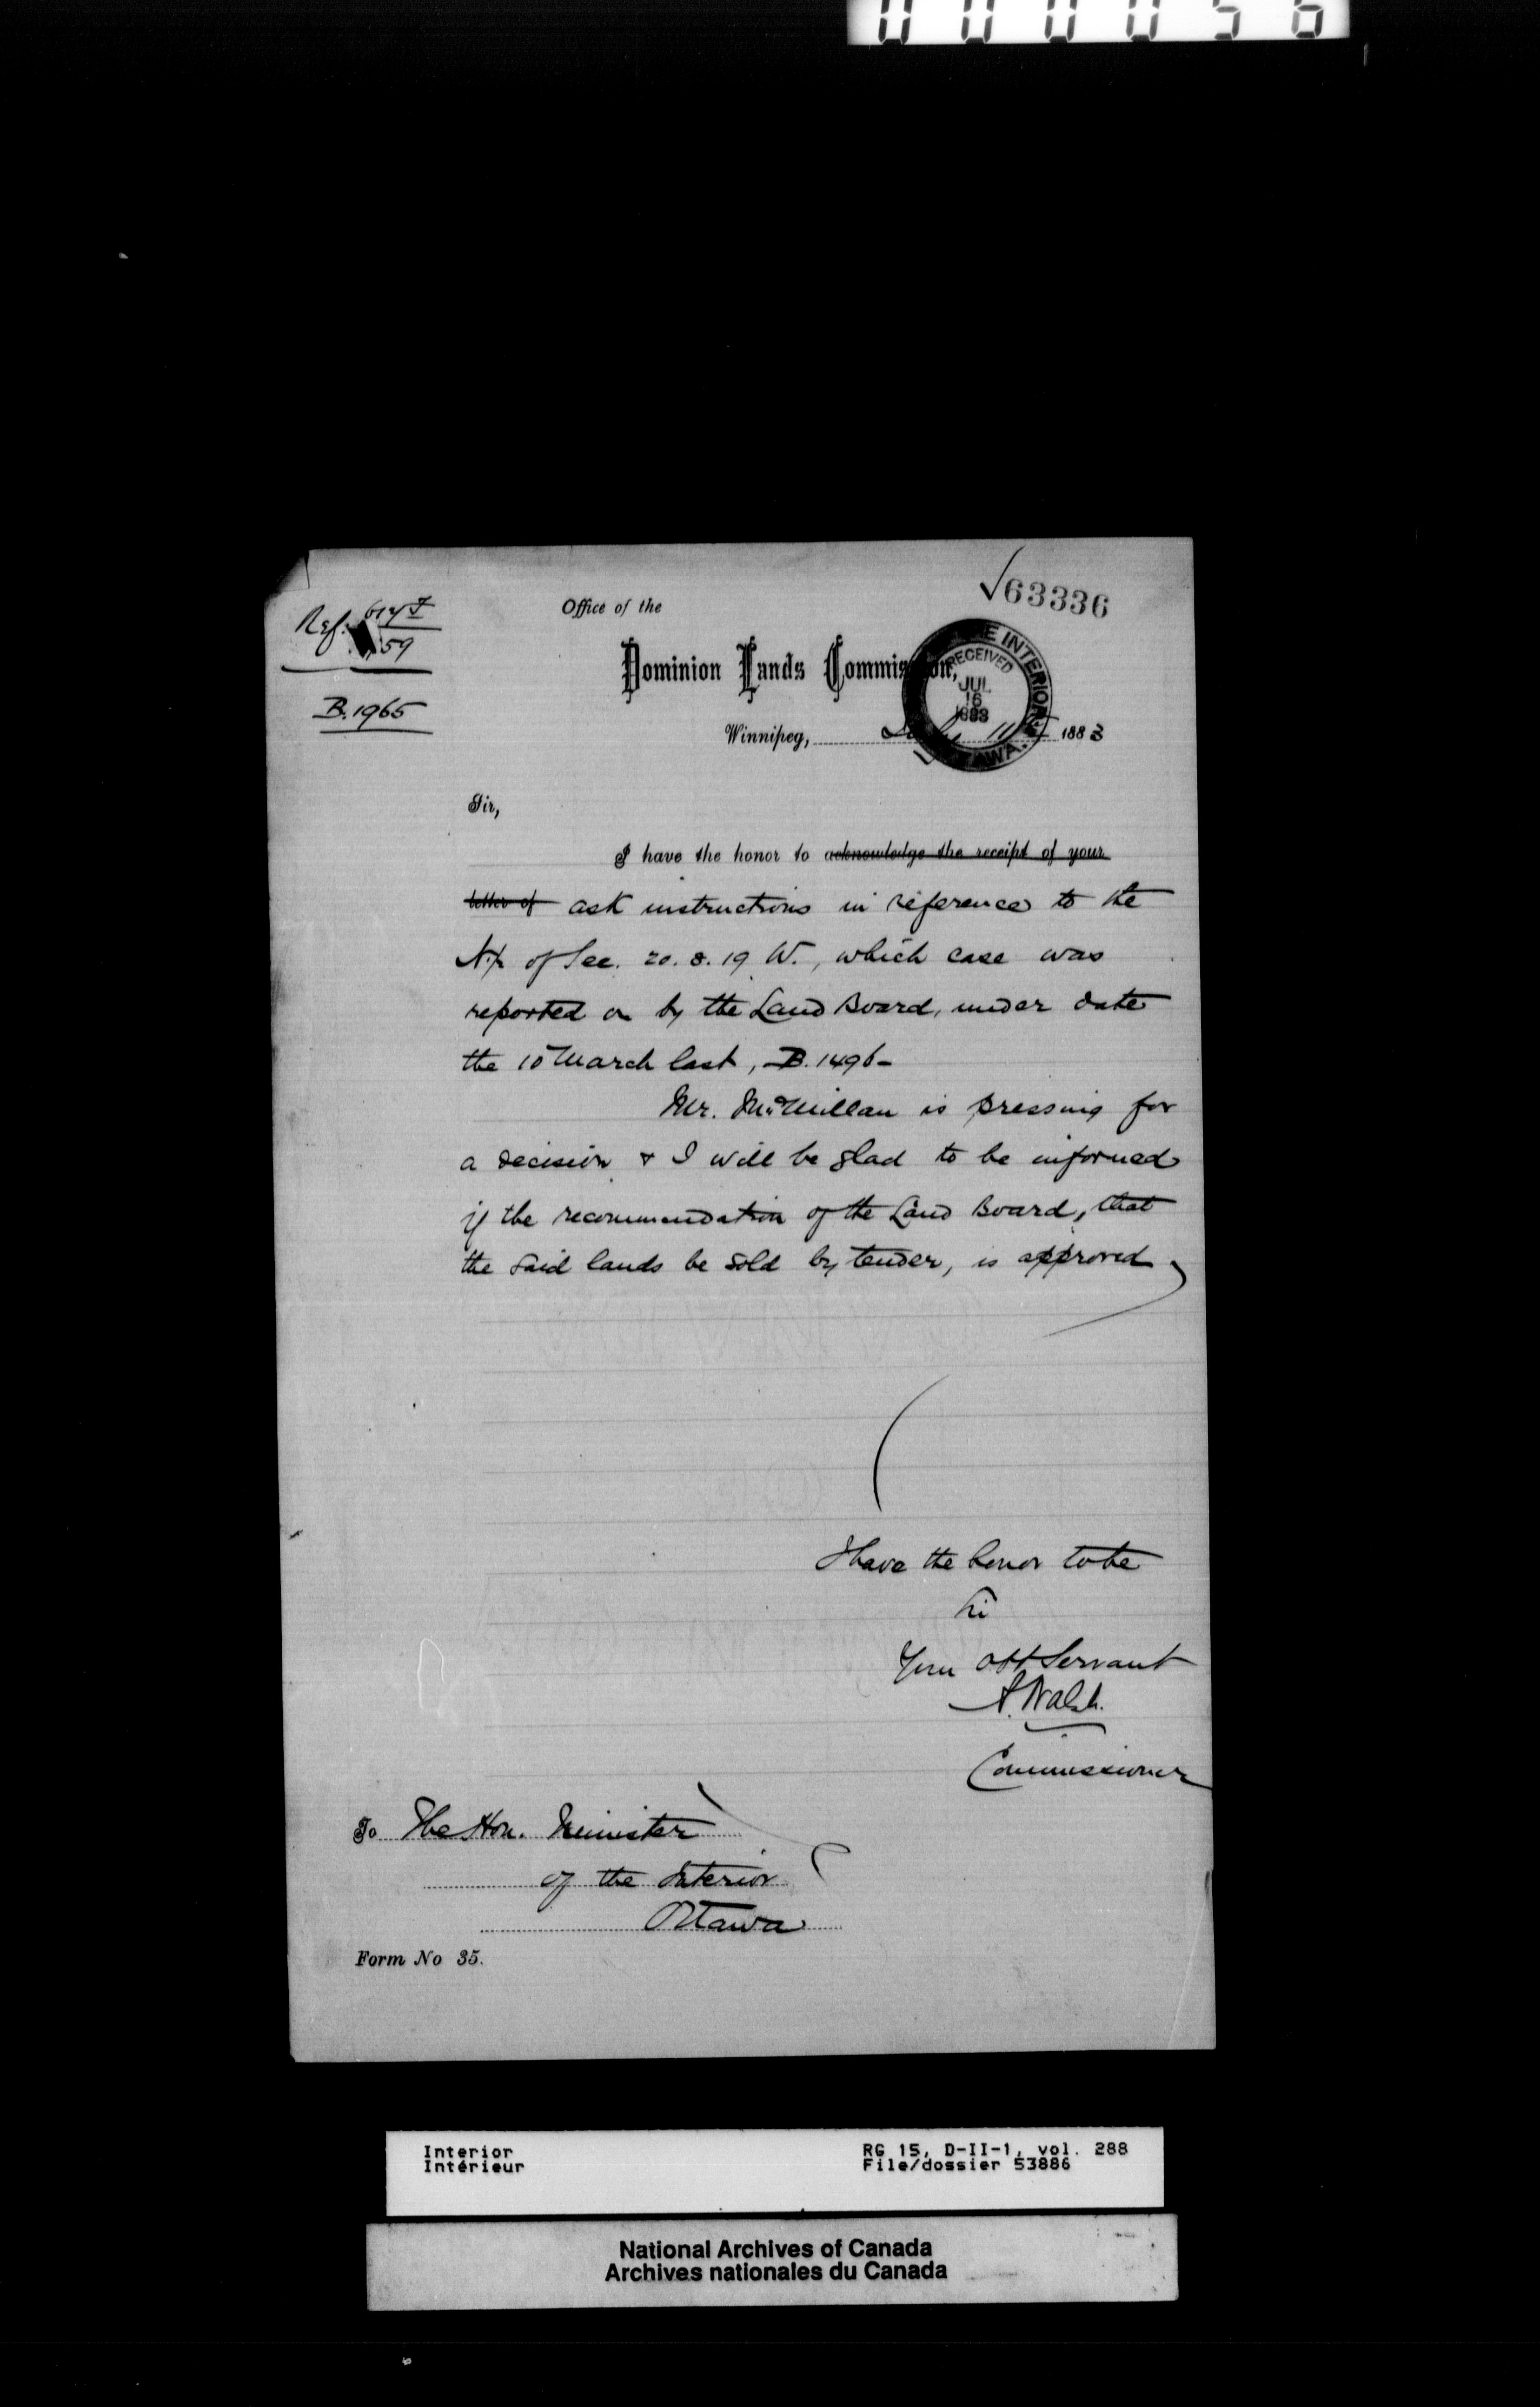 000056
√63336
Ref. 59
B. 1965
Office of the
Dominion Lands Commission,
THE INTERIOR
RECEIVED
JUL
16
1883
OTTAWA.
Winnipeg, July 11th 1883
Sir,
I have the honor to acknowledge the receipt of your
letter of ask instructions in reference to the
N.½ of Sec. 20. 8. 19 W., which case was
reported on by the Land Board, under date
the 10 March last, B. 1496-
Mr. McMillan is pressing for
a decision & I will be glad to be informed
if the recommendation of the Land Board, that
the said lands be sold by tender, is approved
I have the honor to be
Sir
Your Obt Servant
A. Walsh.
Commissioner
To The Hon. Minister
of the Interior
Ottawa
Form No 35.
Interior
Intérieur
RG 15, D-II-1, vol. 288
File/dossier 53886
National Archives of Canada
Archives nationales du Canada